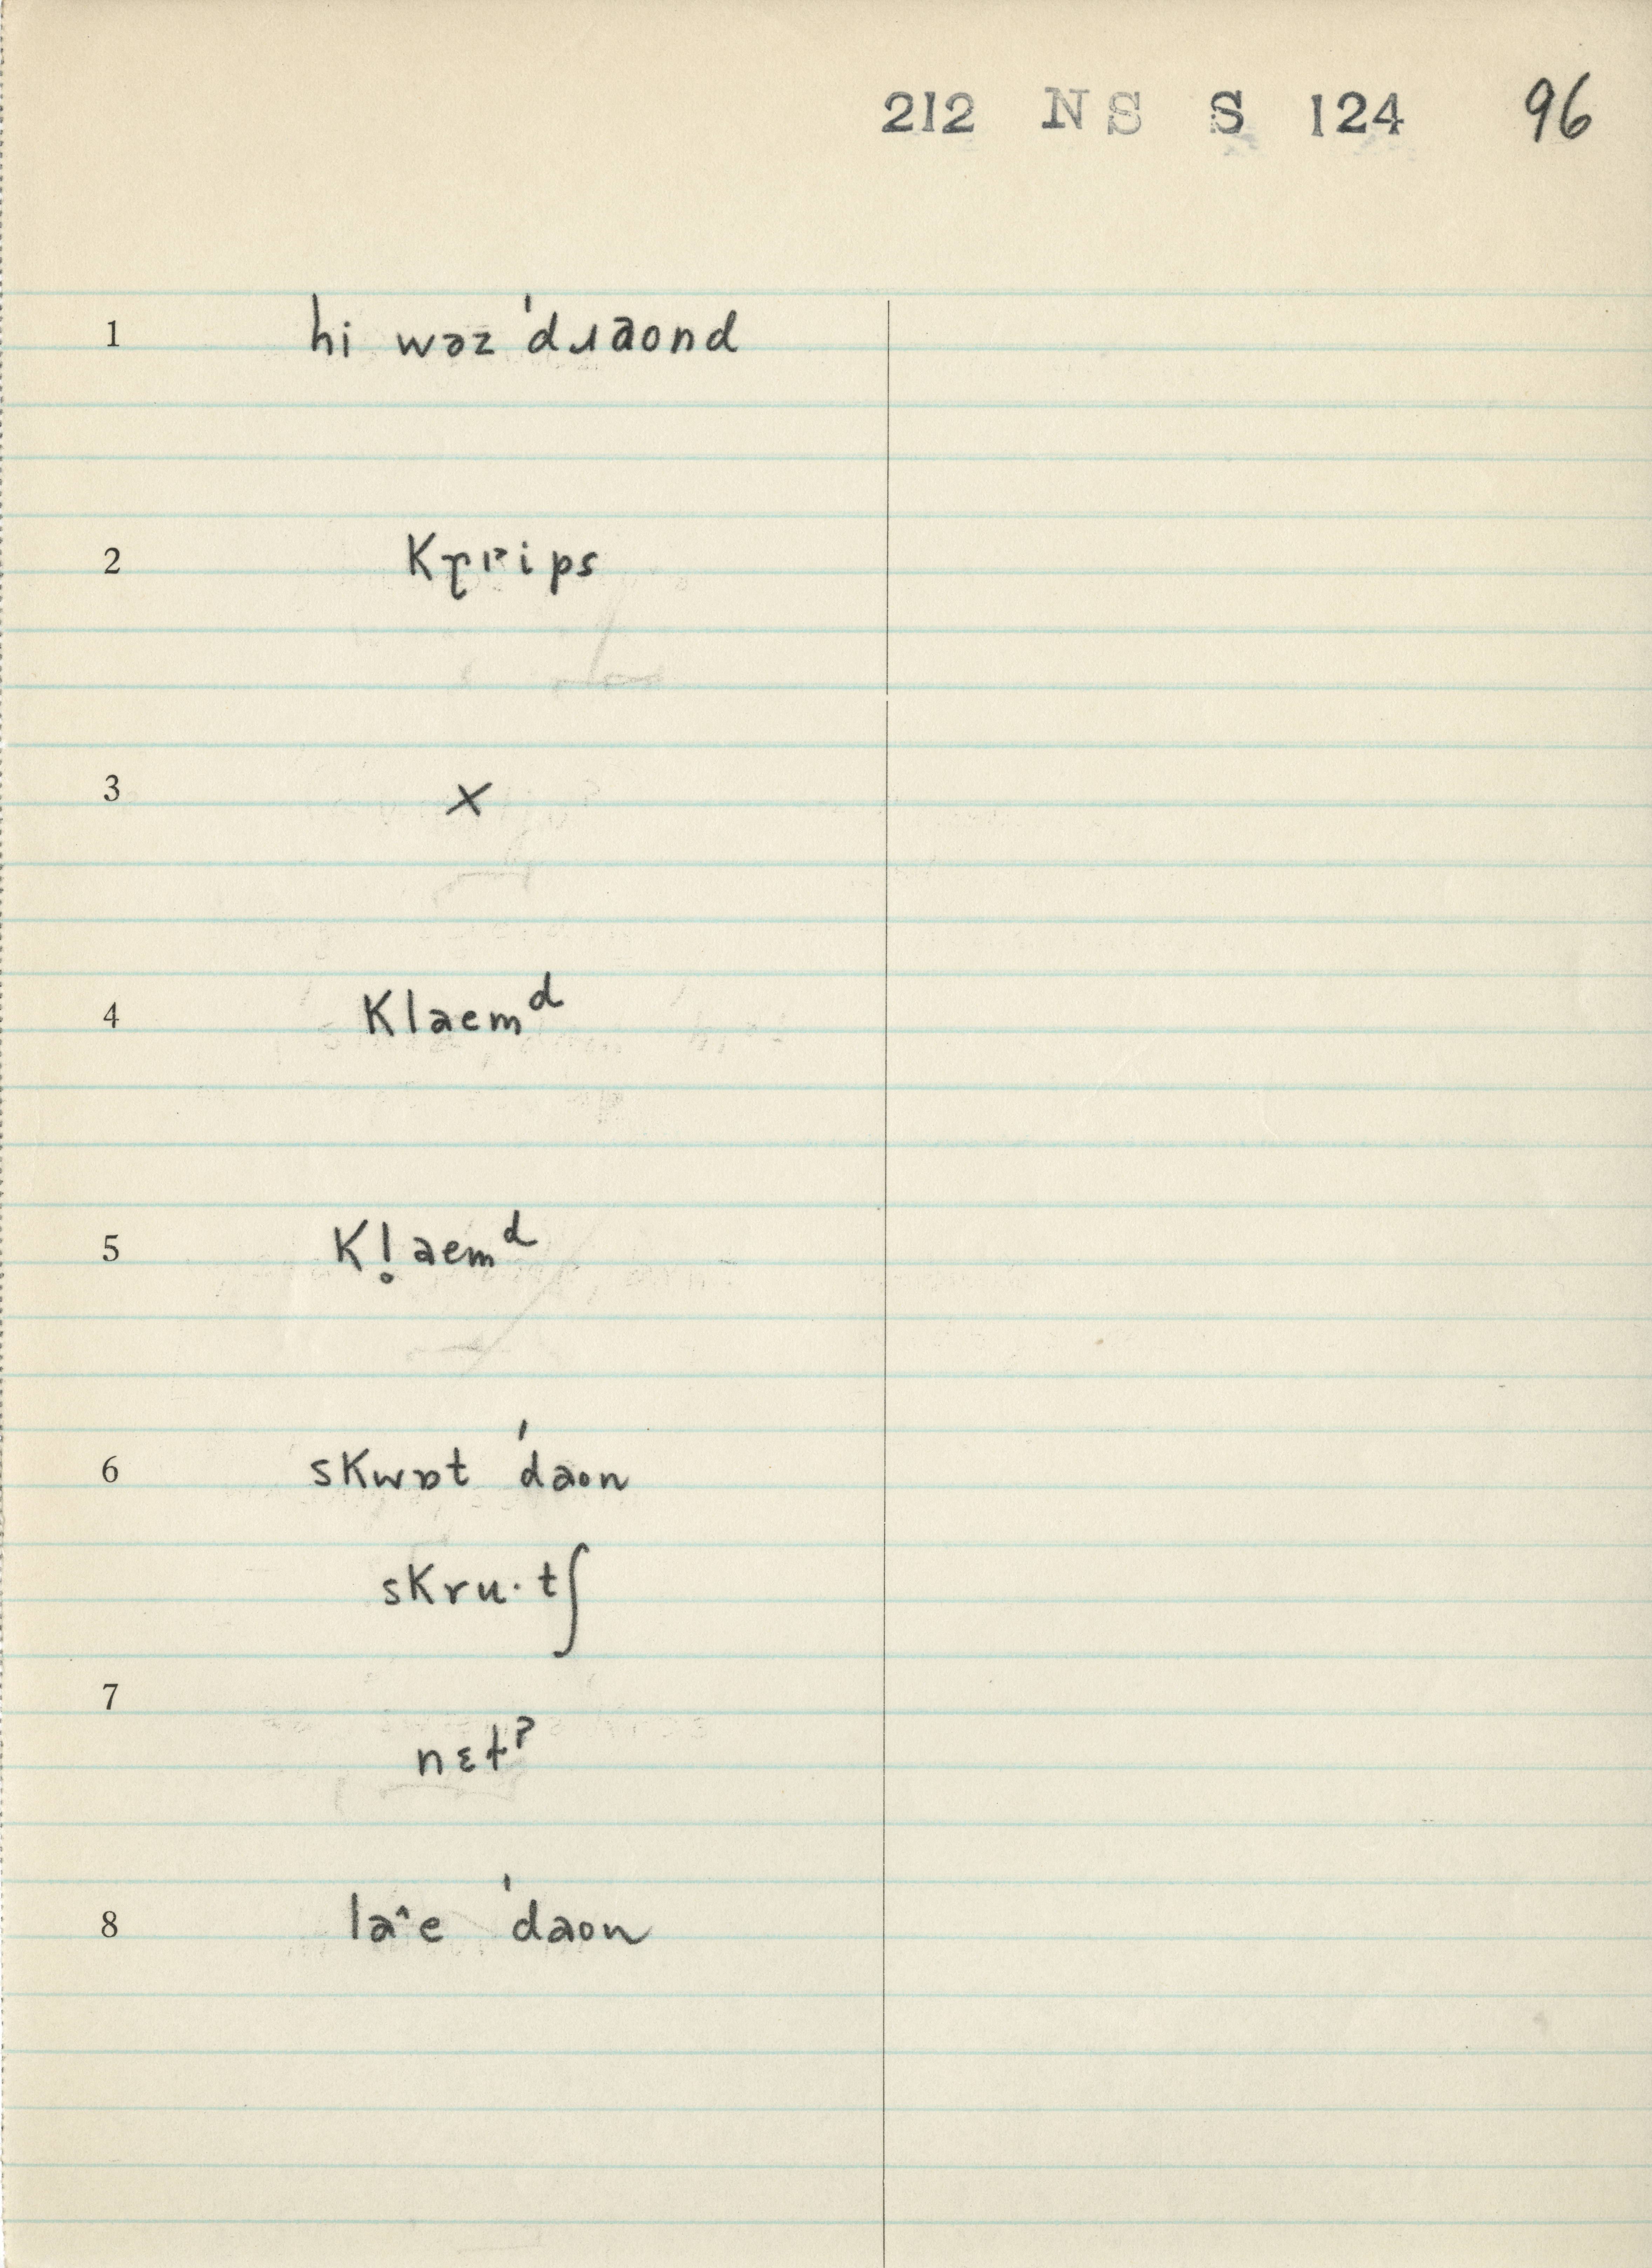 212 NS S 124 96
1 hi wəz ˈdɹaond
2
3 x
4 Klaemᵈ
5 Kl̥aemᵈ
6 sKwɒt ˈdaon
sKru·tʃ
7
nɛtˀ
8 la˄e ˈdaon